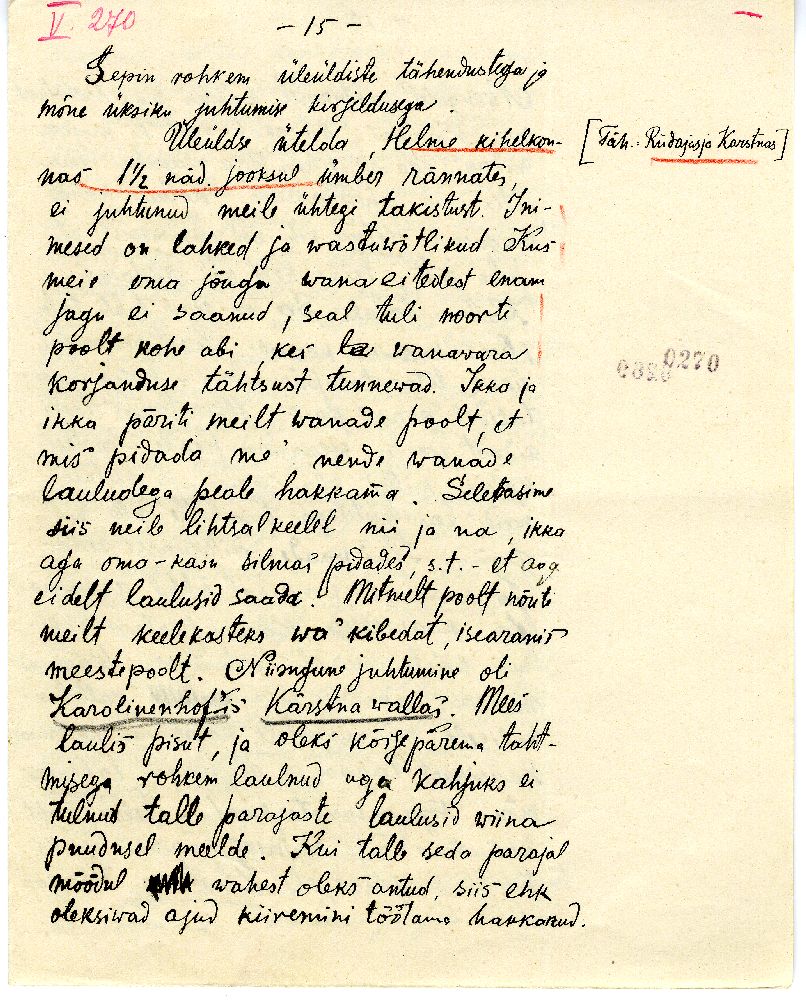 V. 270
- 15 -
Lepin rohkem üleüldiste tähendustega ja
mõne üksiku juhtumise kirjeldusega.
Üleüldse ütelda, Helme kihelkon-
[Täh.: Riidajas ja Karstnas]
nas 1 1/2 näd. jooksul ümber rännates,
ei juhtunud meile ühtegi takistust. Ini-
mesed on lahked ja wastuwõtlikud. Kus
meie oma jõuga wana eitedest enam
jagu ei saanud, seal tuli noorte
poolt kohe abi, kes wanawara
korjanduse tähtsust tunnewad. Ikka ja
ikka päriti meilt wanade poolt, et
mis pidada me nende wanade
lauludega peale hakkama. Seletasime
siis neile lihtsal keelel nii ja na, ikka
aga oma-kasu silmas pidades, s.t. - et aga
eidelt laulusid saada. Mitmelt poolt nõuti
meilt keelekasteks wa kibedat, isearanis
meestepoolt. Niisugune juhtumine oli
Karolinenhof'is Kärstna wallas. Mees
laulis pisut, ja oleks kõige pärema taht-
misega rohkem laulnud aga kahjuks ei
tulnud talle parajaste laulusid wiina
puudusel meelde. Kui talle seda parajal
möödul wahest oleks antud, siis ehk
oleksiwad ajud kiiremini töötama hakkanud.
0270